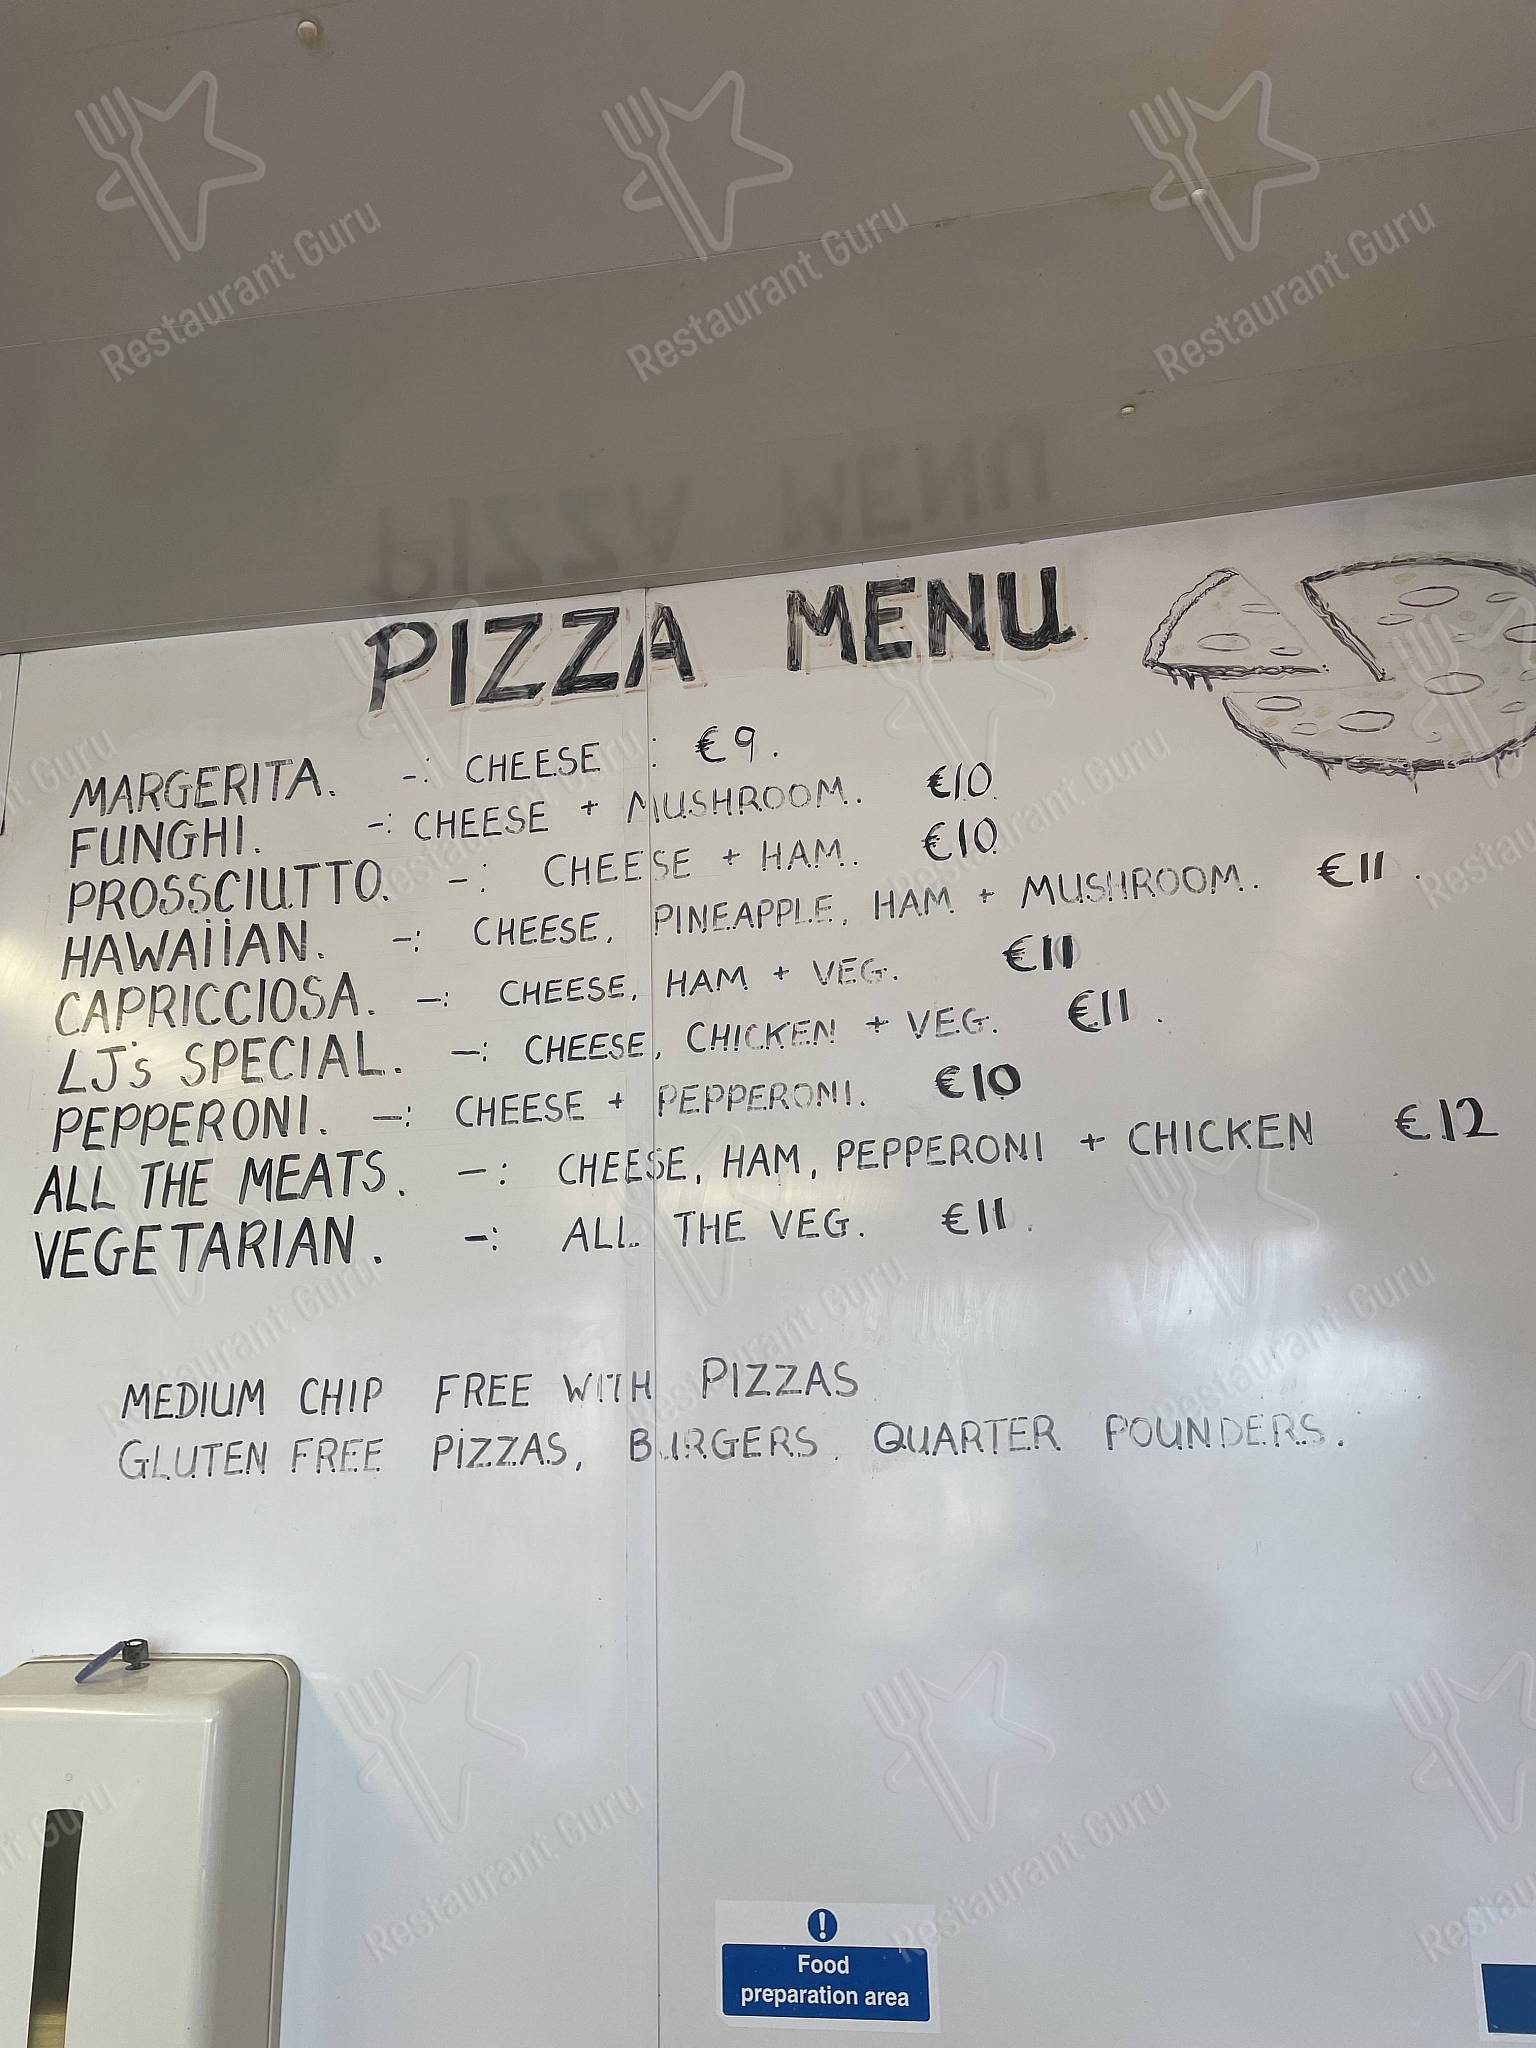 Restaurant Guru Restaurant Guru Restaurant Guru
PIZZA MENU
MARGERITA. -: CHEESE : €9.
FUNGHI. -: CHEESE + MUSHROOM. €10
PROSSCIUTTO. -: CHEESE + HAM. €10
HAWAIIAN. -: CHEESE, PINEAPPLE, HAM + MUSHROOM. €11.
CAPRICCIOSA. -: CHEESE, HAM + VEG. €11
LJ's SPECIAL. -: CHEESE, CHICKEN + VEG. €11.
PEPPERONI. -: CHEESE + PEPPERONI. €10
ALL THE MEATS. -: CHEESE, HAM, PEPPERONI + CHICKEN €12
VEGETARIAN. -: ALL THE VEG. €11.
MEDIUM CHIP FREE WITH PIZZAS
GLUTEN FREE PIZZAS, BURGERS, QUARTER POUNDERS.
Restaurant Guru Restaurant Guru
Food
preparation area